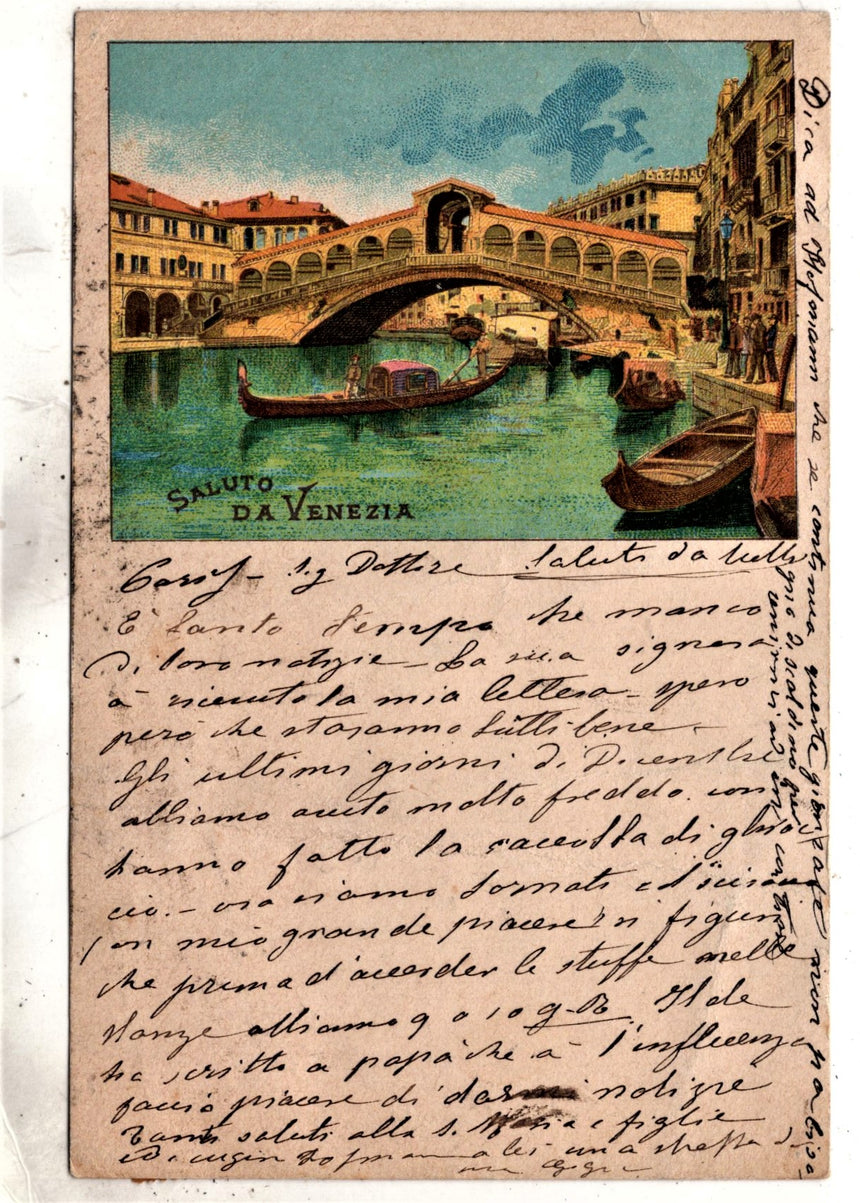 SALUTO
DA VENEZIA
Cariss. Sig Dottore Saluti da tutti
È tanto tempo che manco
di loro notizie - La sua signora
à ricevuto la mia lettera - spero
però che staranno tutti bene -
Gli ultimi giorni di Dicembre
abbiamo avuto molto freddo. con
hanno fatto la raccolta di ghiac
cio. - ora siamo tornati
con mio grande piacere si figuri
che prima d'accender le stuffe nelle
stanze abbiamo 9 o 10 g. R. Ilde
ha scritto a papà che à l'influenza
faccio piacere di darmi notizie
Tanti saluti alla S. Maria e figlie
cugin Hofmann a lei una stretta di
Dica ad Hofmann che se continua queste giornate non ha biso
gno di scaldino per